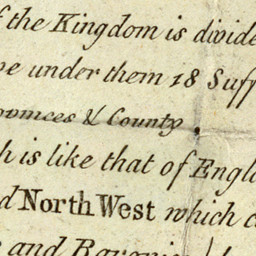 f the Kingdom is divide
e under them 18 Suff
ovinces & County.
h is like that of Engla
d North West which c
and Baronies